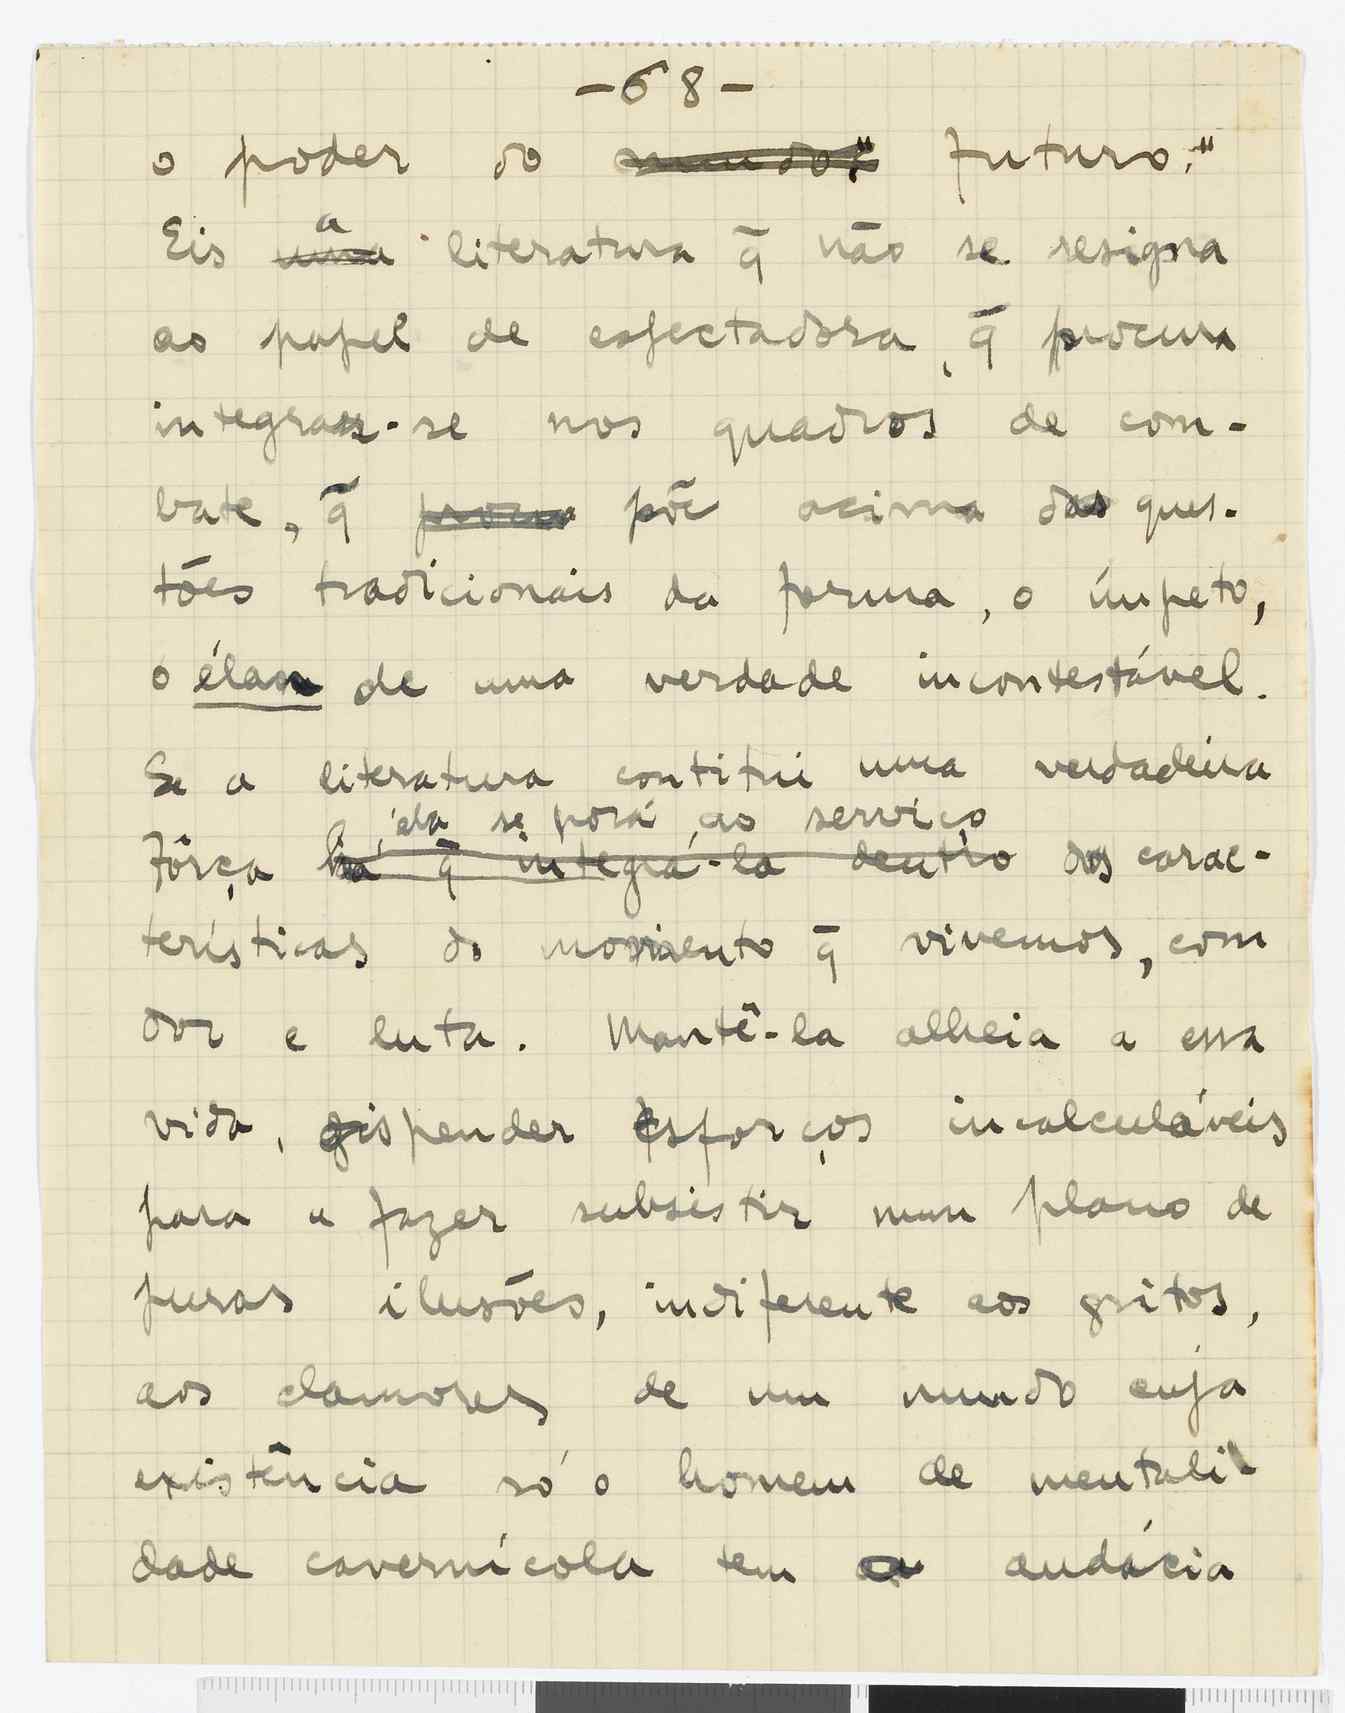 -68-
o poder do mundo." futuro."
a
Eis uma literatura q̃ não se resigna
ao papel de espectadora, q̃ procura
integrar-se nos quadros de com-
bate, q̃ procura põe acima das ques-
tões tradicionais da forma, o ímpeto,
o élan de uma verdade incontestável.
Se a literatura contitui uma verdadeira
ela se porá ao serviço
fôrça há q̃ integrá-la dentro das carac-
terísticas do momento q̃ vivemos, com
dor e luta. Mantê-la alheia a essa
vida, dispender esforços incalculáveis
para a fazer subsistir num plano de
puras ilusões, indiferente aos gritos,
aos clamores de um mundo cuja
existência só o homem de mentali-
dade cavernícola tem a audácia